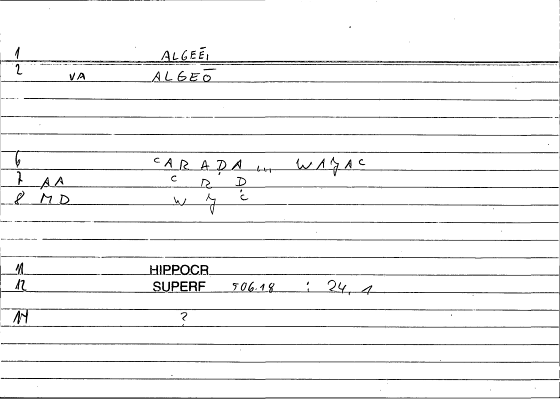 1 ALGEĒI
2 VA ALGEŌ
6 ᶜARADA in WAJAC
7 AA C R D
8 MD W J C
11 HIPPOCR
12 SUPERF 506.18 : 24, 1
14 ?